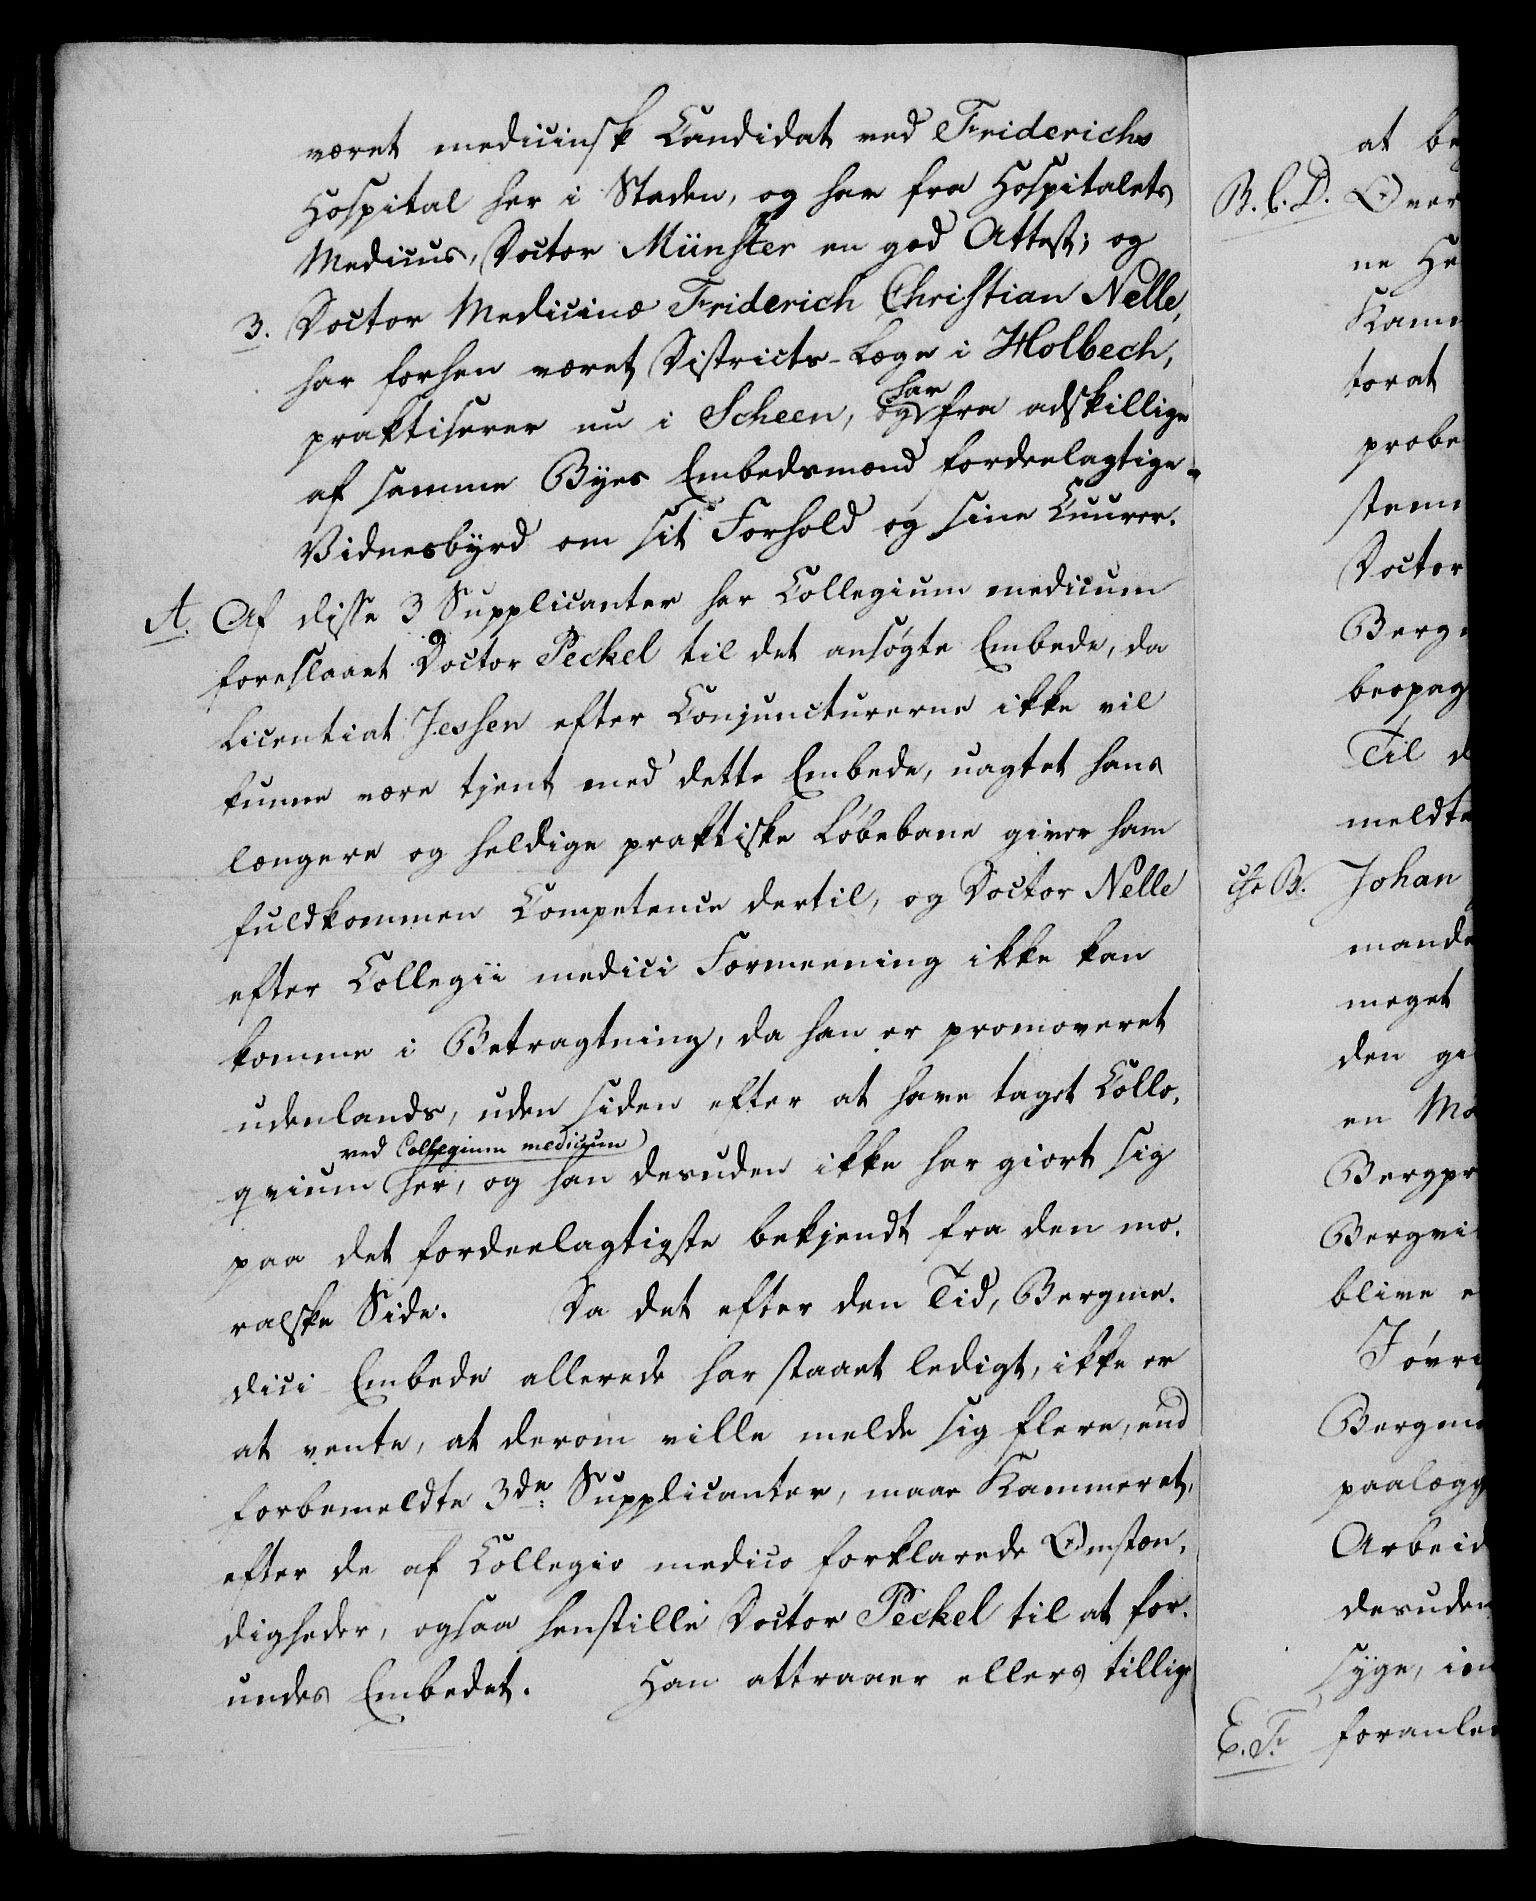 været medicinsk Candidat ved Friderichs
Hospital her i Staden, og har fra Hospitalets
Medicus, Doctor Münster en god Attest; og
3. Doctor Medicinæ Friderich Christian Nelle,
har forhen været Districts-Læge i Holbech,
praktiserer nu i Scheen, og har fra adskillige
af samme Byes Embedsmænd fordeelagtige
Vidnesbyrd om sit Forhold og sine Cuurer.
A. Af disse 3 Supplicanter har Collegium medicum
foreslaaet Doctor Peckel til det ansøgte Embede, da
Licentiat Jessen efter Conjuncturerne ikke vil
kunne være tjent med dette Embede, uagtet hans
længere og heldige praktiske Løbebane giver ham
fuldkommen Competence dertil, og Doctor Nelle
efter Collegii medici Formeening ikke kan
komme i Betragtning, da han er promoveret
udenlands, uden siden efter at have taget Collo-
qvium ved Collegium medicum her, og han desuden ikke har giort sig
paa det fordeelagtigste bekjendt fra den mo-
ralske Side. Da det efter den Tid, Bergme-
dici Embede allerede har staaet ledigt, ikke er
at vente, at derom ville melde sig flere, end
forbemeldte 3de Supplicanter, maae Kammeret,
efter de af Collegio medico forklarede Omstæn-
digheder, ogsaa henstille Doctor Peckel til at for-
undes Embedet. Han attraaer ellers tillige
at be
B. C. D. Over
ne He
Kam
torat
probe
stem
Doctor
Berg
beopag
Til d
meldte
Johan
mand
meget
den ge
en Ma
Bergpr
Bergvi
blive e
Iøvri
Bergme
paalægg
Arbeid
desuden
syge, i
E. F. foranle